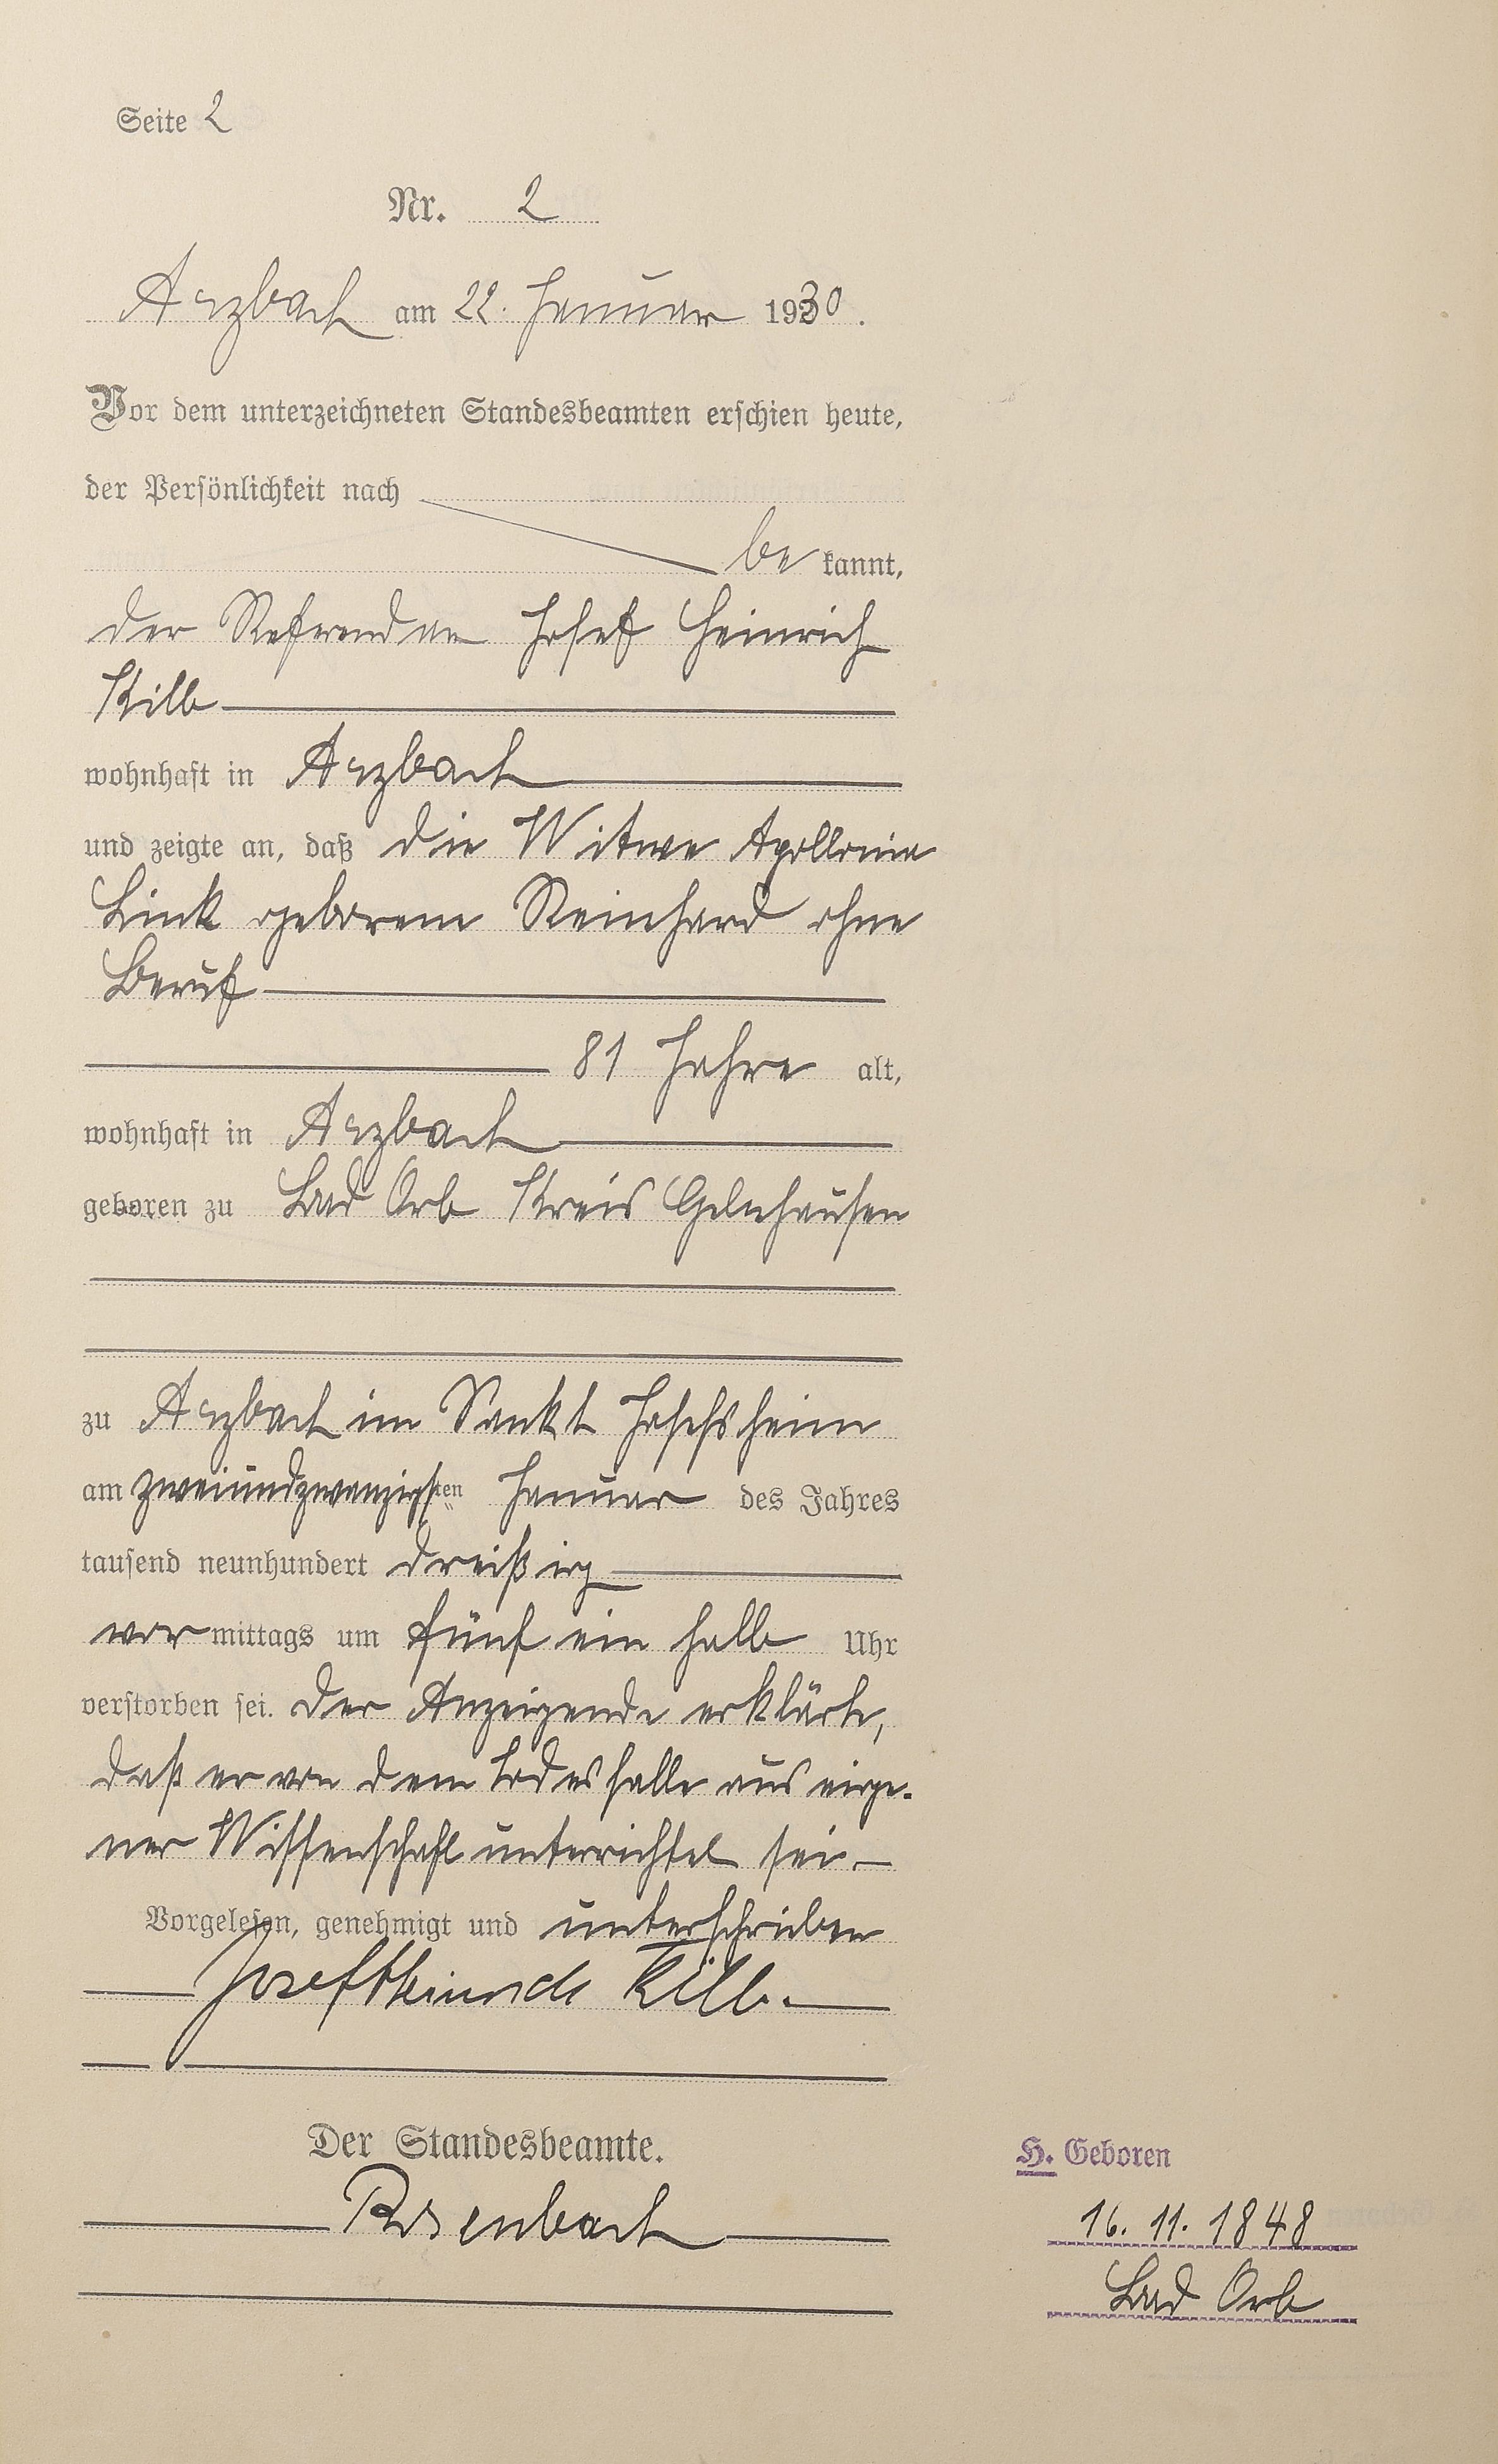 Seite 2
Nr. 2
Arzbach am 22. Januar 1930.
Vor dem unterzeichneten Standesbeamten erschien heute,
der Persönlichkeit nach
be kannt,
der Referendar Josef Heinrich
Kilb
wohnhaft in Arzbach
und zeigte an, daß die Witwe Apollonia
Link geborene Reinhard ohne
Beruf
81 Jahre alt,
wohnhaft in Arzbach
geboren zu Bad Orb Kreis Gelnhausen
zu Arzbach im Sankt Josefsheim
am zweiundzwanzigsten Januar des Jahres
tausend neunhundert dreißig
vormittags um fünf ein halb Uhr
verstorben sei. Der Anzeigende erklärte,
daß er von dem Todesfalle aus eige-
ner Wissenschaft unterrichtet sei.
Vorgelesen, genehmigt und unterschrieben
Josef Heinrich Kilb.
Der Standesbeamte.
Rosenbach
H. Geboren
16. 11. 1848
Bad Orb